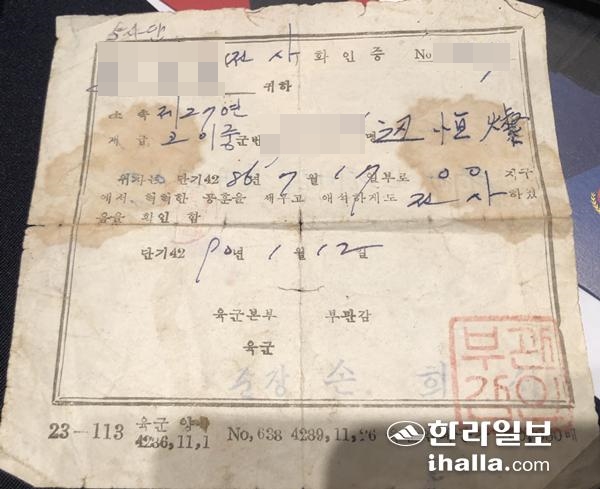 전사 화인증 No
귀하
소속 제27연
계급 군번 명 恒燦
위자는 단기42 86년 7월 17일부로 지구
에서 혁혁한 공훈을 세우고 애석하게도 전사 하였
음을 확인 함
단기42 90년 1월 12일
육군본부 부관감
육군
준장 손 희
부관
감인
23-113 육군 양
4286,11,1 No, 638 4289,11,26
한라일보
ihalla.com